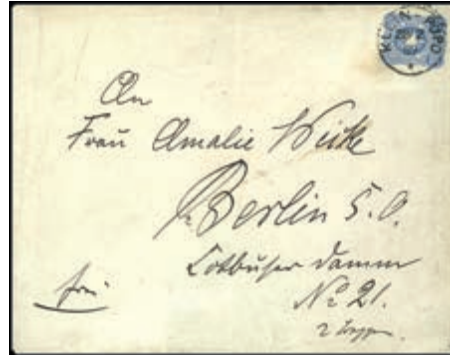 An
Frau Amalie Wicke
Berlin S.O.
Cottbuser Damm
No 21.
2 Treppen
frei